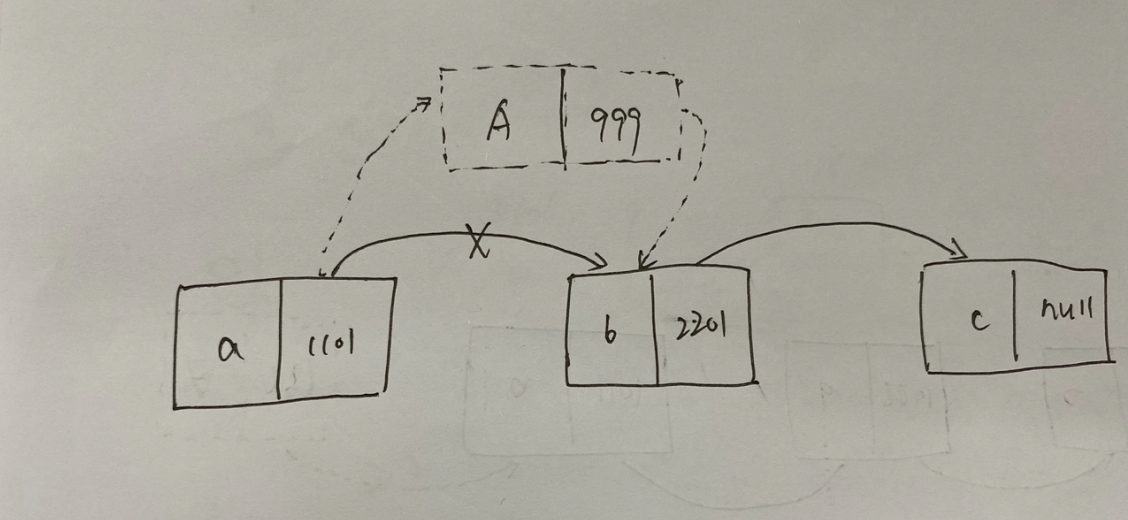 A 999
X
a 1101
b 2201
c null